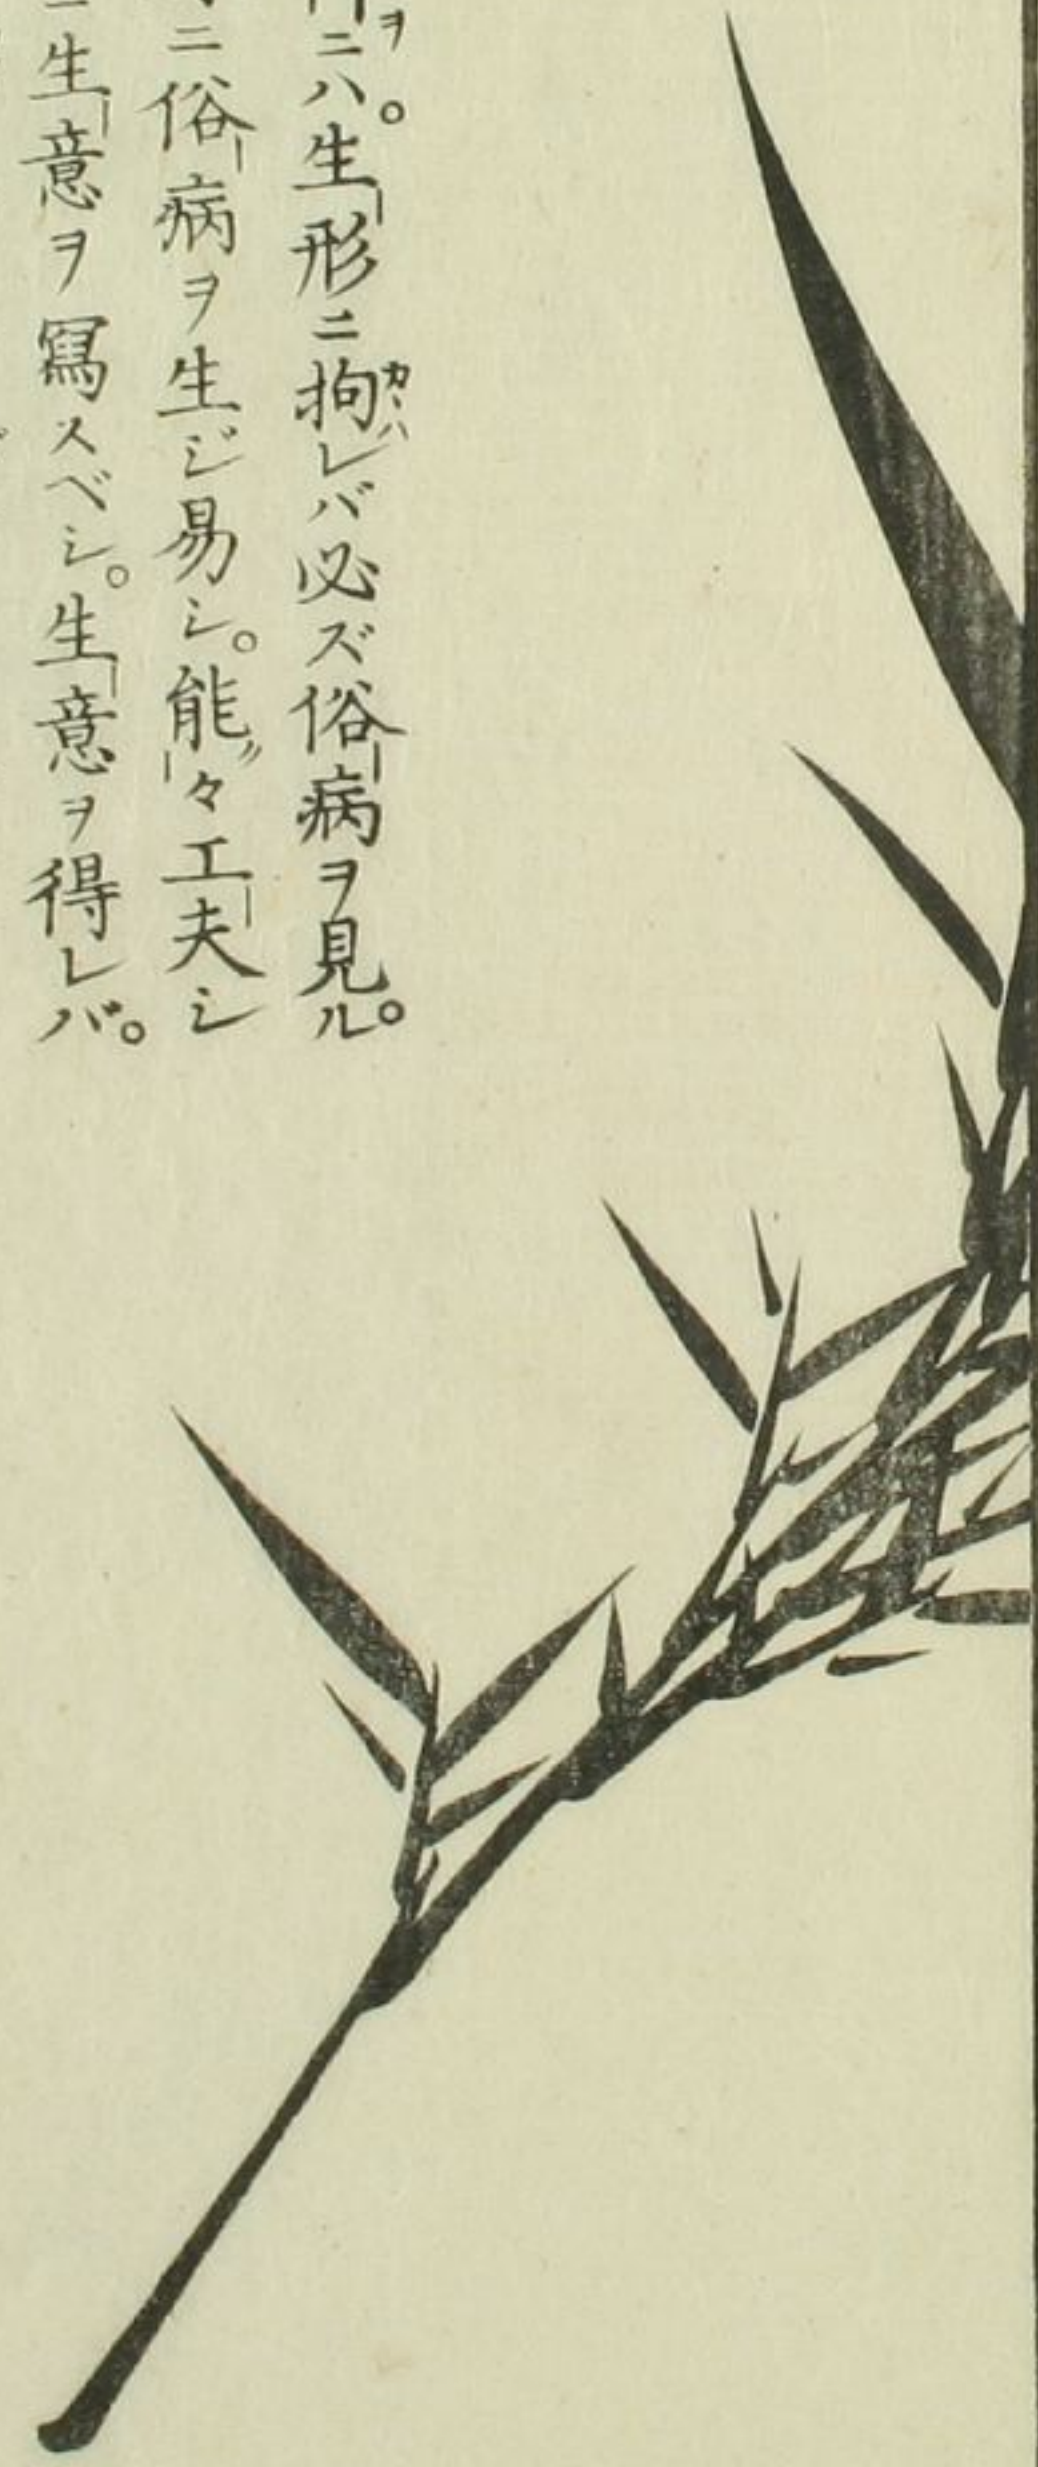 ニハ。生形ニ拘レバ必ズ俗病ヲ見ル。
ニ俗病ヲ生ジ易シ。能々工夫シ
生意ヲ寫スベシ。生意ヲ得レバ。